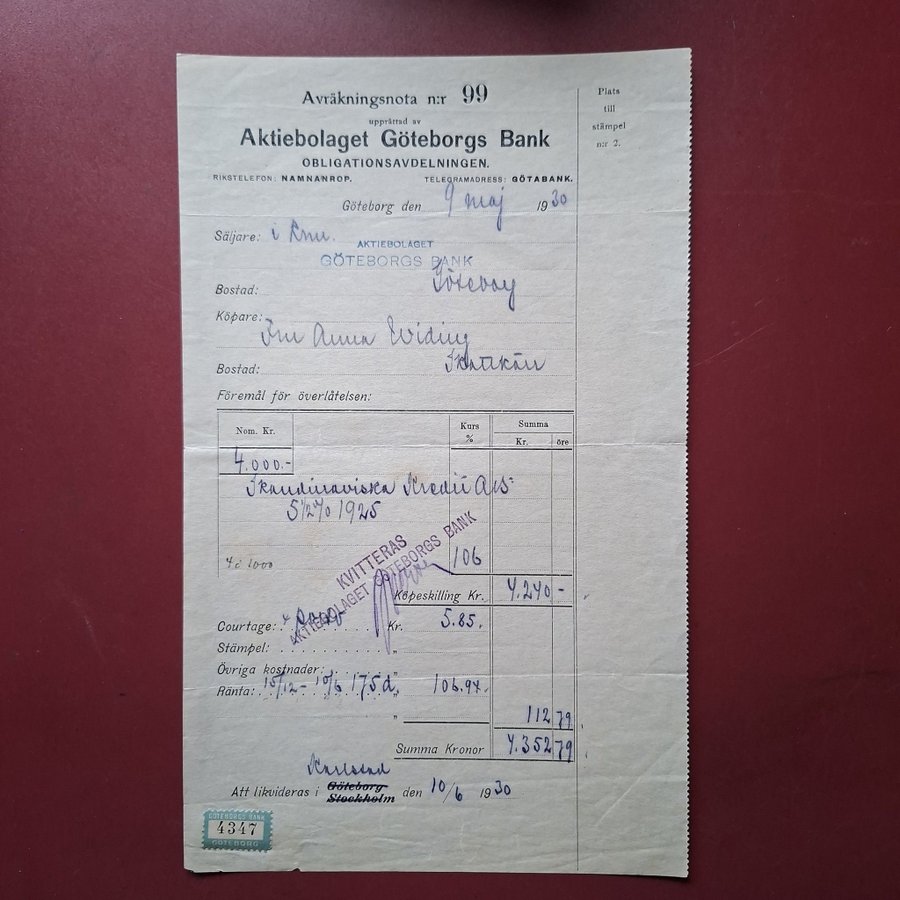 Avräkningsnota n:r 99
upprättad av
Aktiebolaget Göteborgs Bank
OBLIGATIONSAVDELNINGEN.
RIKSTELEFON: NAMNANROP. TELEGRAMADRESS: GÖTABANK.
Göteborg den 9 maj 1930
Säljare:
AKTIEBOLAGET
GÖTEBORGS BANK
Bostad: Göteborg
Köpare: Fru Anna Widing
Bostad: Skattkärr
Föremål för överlåtelsen:
Nom. Kr. Kurs % Summa
Kr. öre
4.000.-
Skandinaviska Kredit A/B
5½% 1925
4 à 1000 106
KVITTERAS
AKTIEBOLAGET GÖTEBORGS BANK
Köpeskilling Kr. 4.240,-
Courtage: Kr. 5.85.
Stämpel: "
Övriga kostnader: "
Ränta: 15/12 – 10/6 175 d. " 106.94.
" 112 79
Summa Kronor 4.352 79
Karlstad
Att likvideras i Göteborg Stockholm den 10/6 1930
GÖTEBORGS BANK
4347
GÖTEBORG
Plats
till
stämpel
n:r 2.